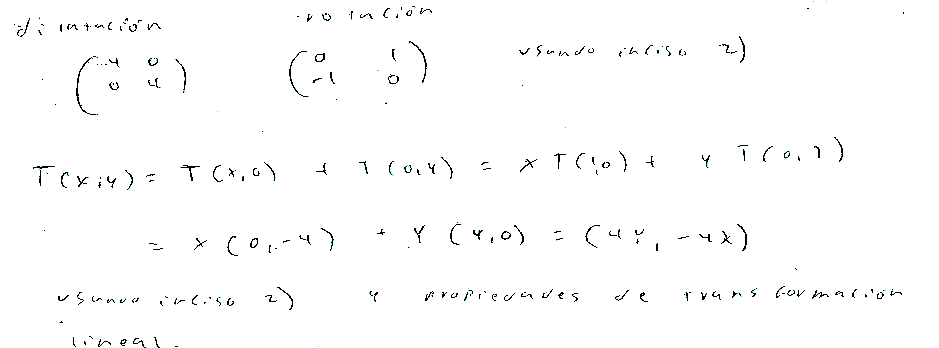 dilatación rotación
( 4 0 ) ( 0 1 ) usando inciso 2)
( 0 4 ) ( -1 0 )
T(x,y) = T(x,0) + T(0,y) = x T(1,0) + y T(0,1)
= x (0,-4) + y (4,0) = (4y, -4x)
usando inciso 2) y propiedades de transformación
lineal.